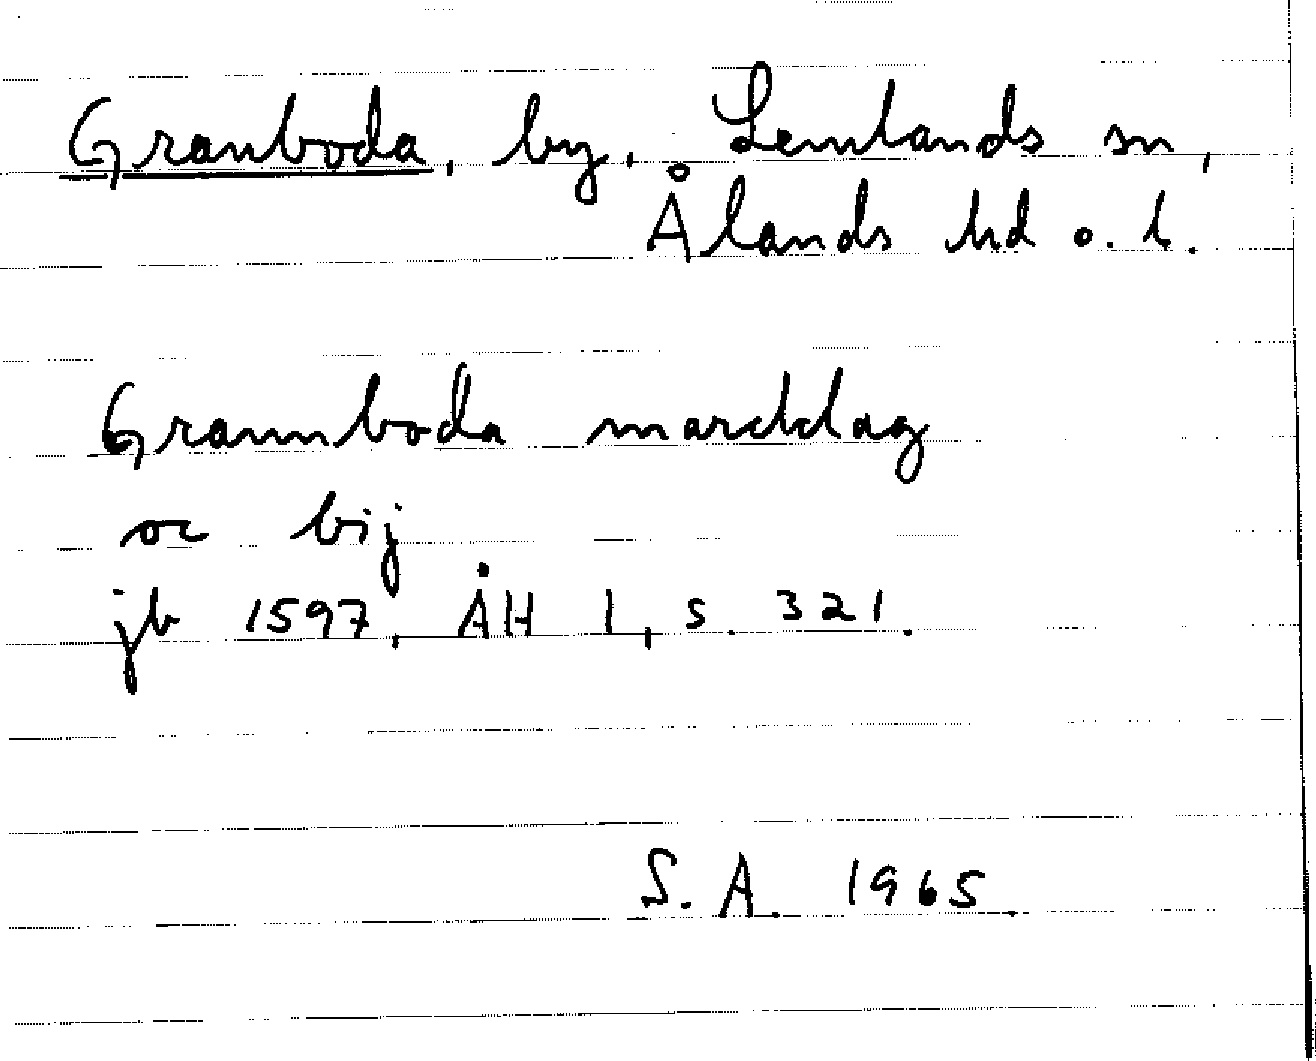 Granboda, by, Lemlands sn,
Ålands hd o. l.
Grannboda marcklag
oc bij
jb 1597, ÅH I, s. 321.
S. A. 1965.